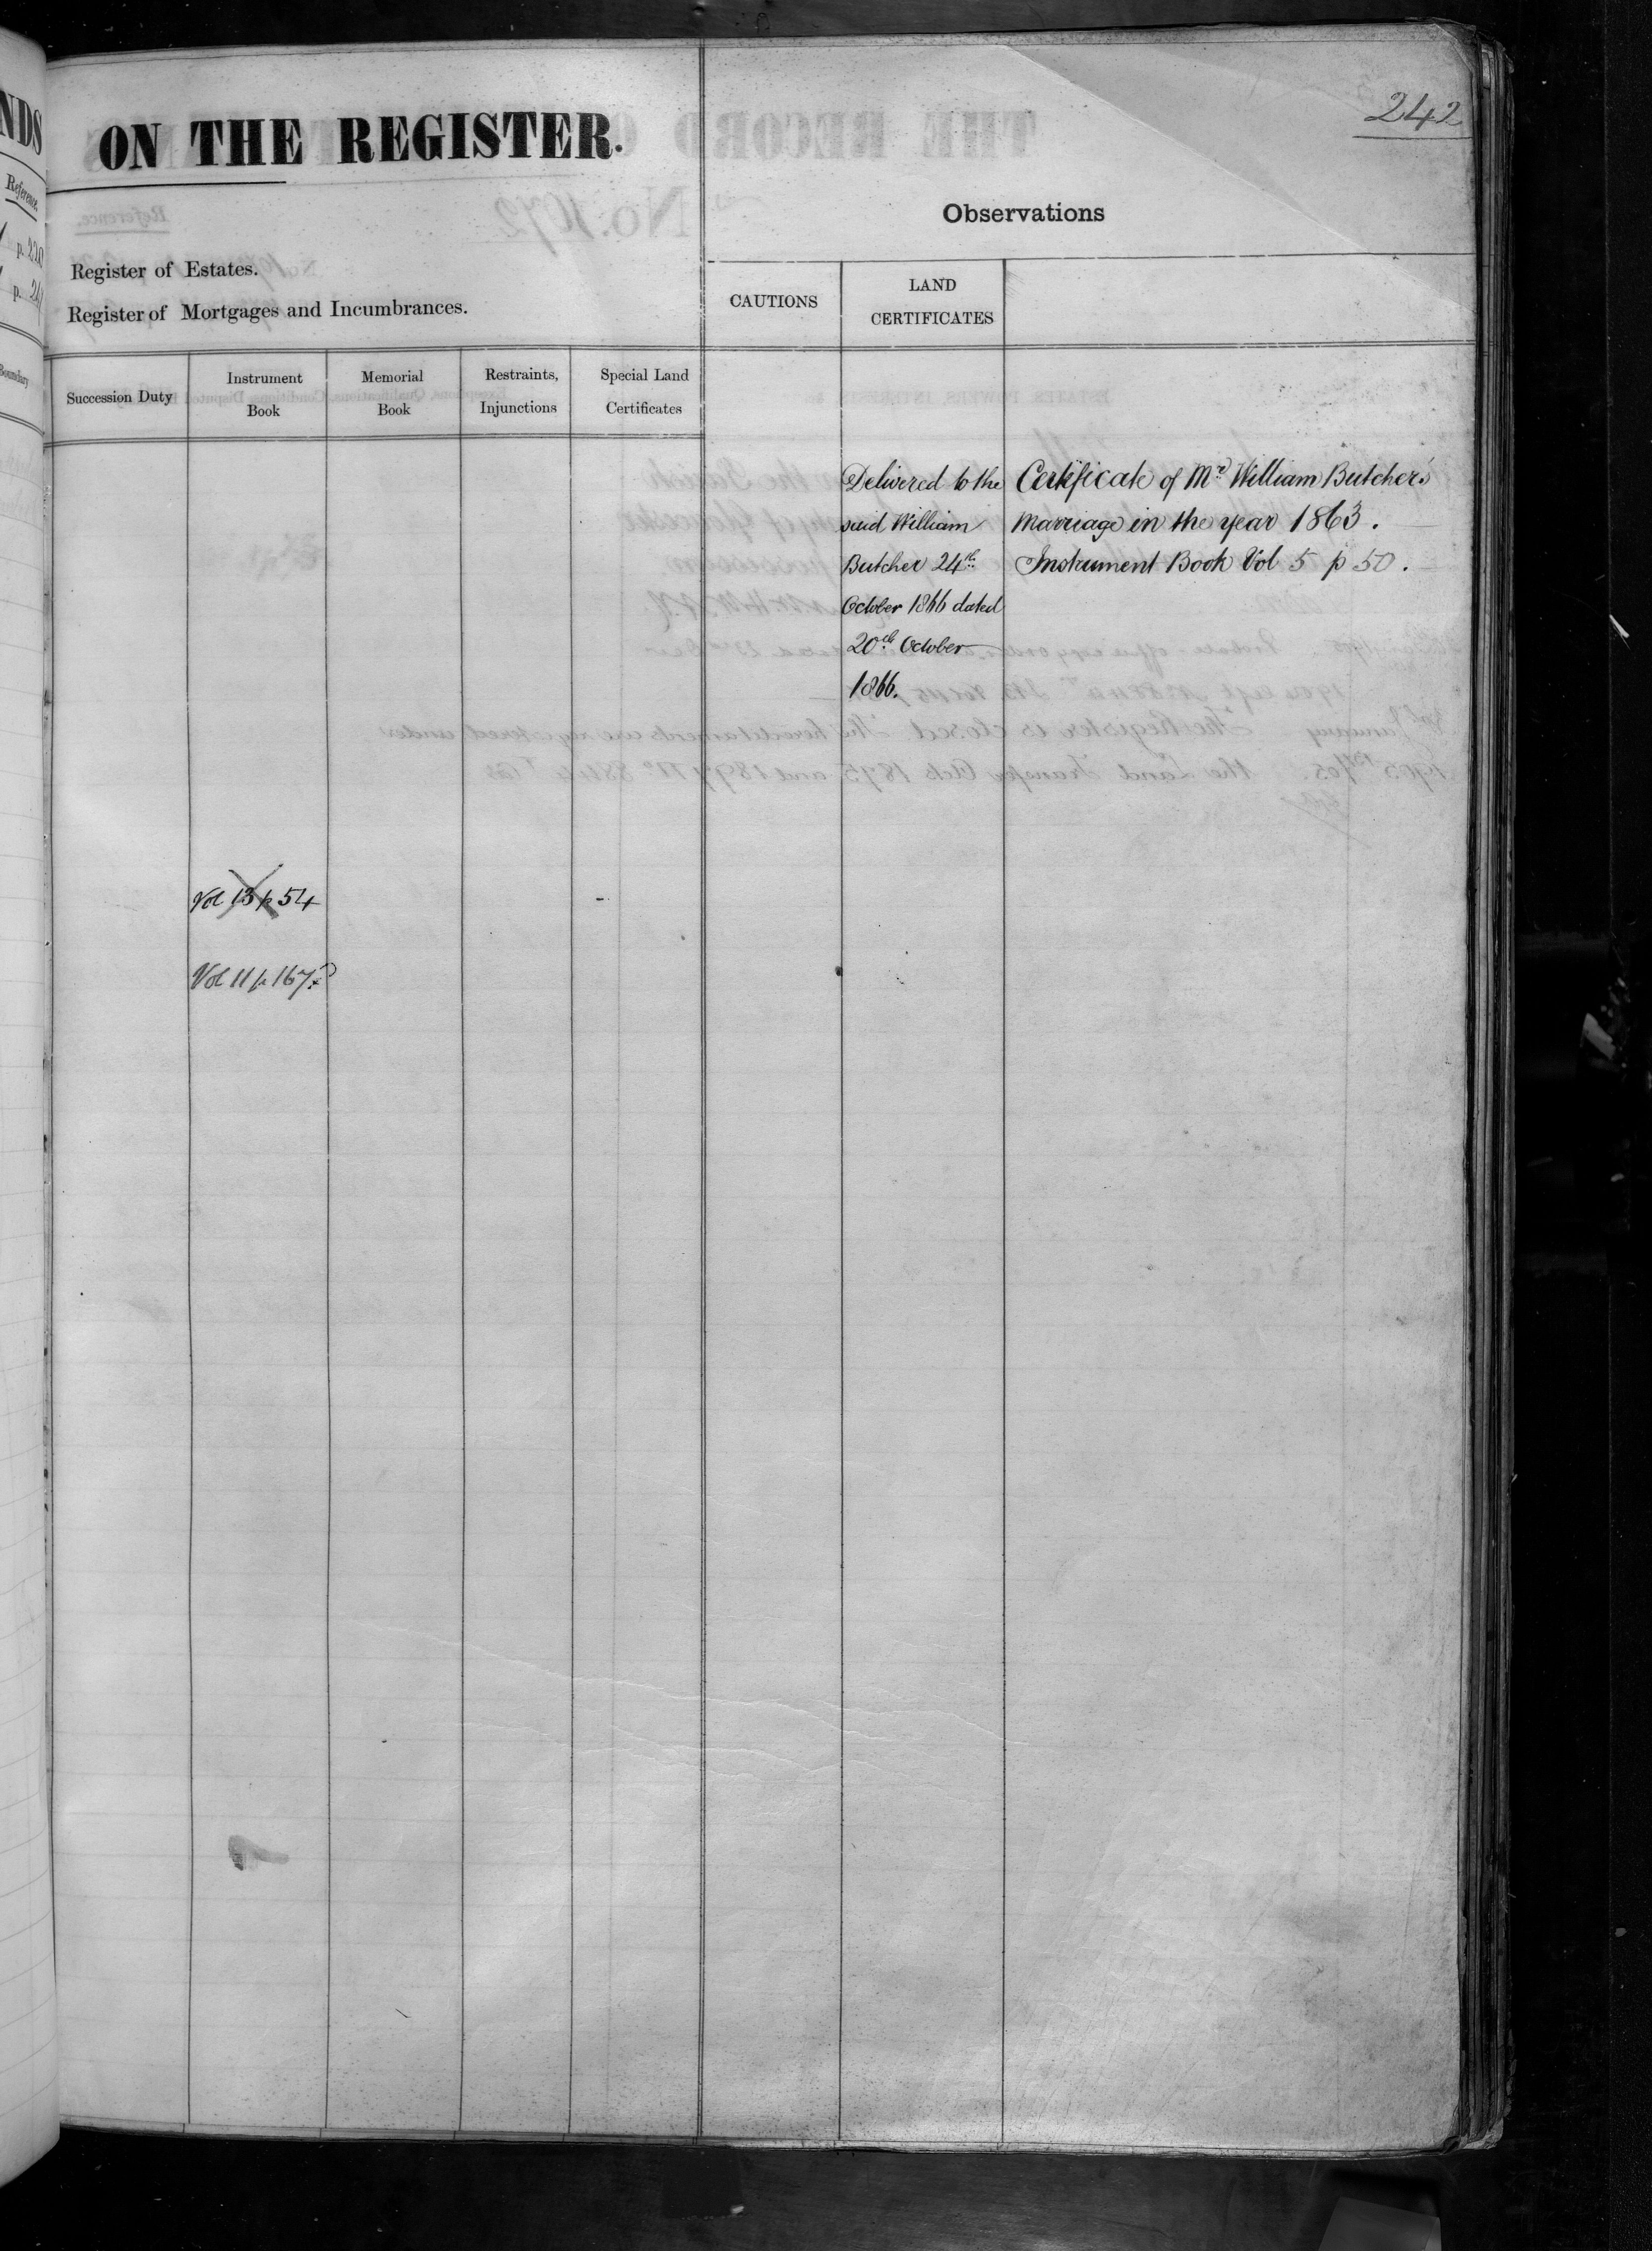 NDS
Reference.
p. 220
p. 241
Boundary
242
ON THE REGISTER.
Observations
Register of Estates.
Register of Mortgages and Incumbrances.
CAUTIONS
LAND
CERTIFICATES
Succession Duty
Instrument
Book
Memorial
Book
Restraints,
Injunctions
Special Land
Certificates
Delivered to the
said William
Butcher 24th
October 1866 dated
20th October
1866.
Certificate of Mr William Butcher's
Marriage in the year 1863.
Instrument Book Vol 5 p 50.
Vol 13 p 54
Vol 11 p 167